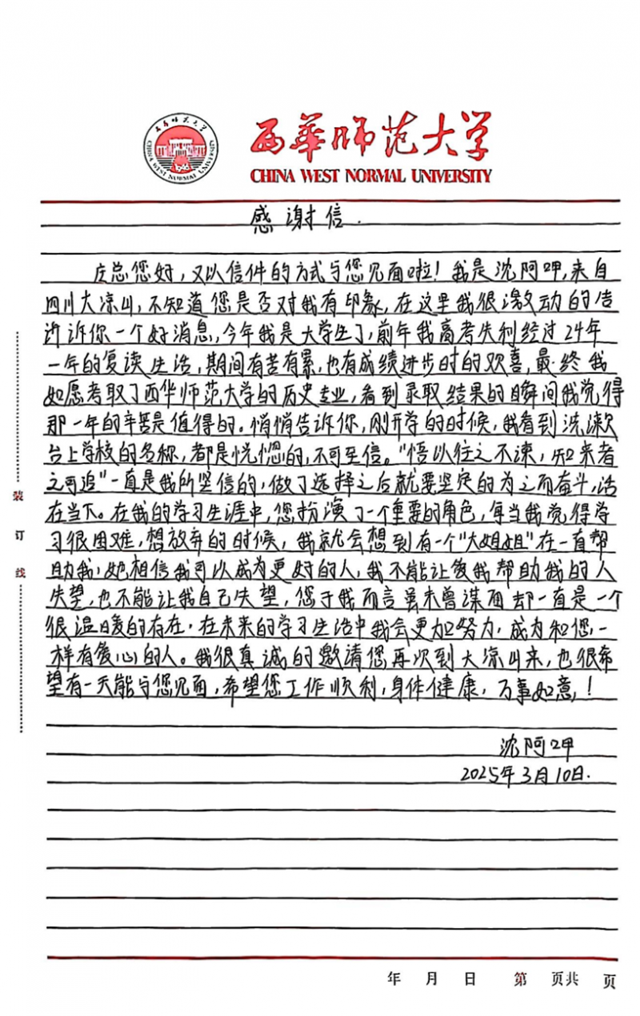 西华师范大学
CHINA WEST NORMAL UNIVERSITY
西华师范大学
CHINA WEST NORMAL UNIVERSITY
感谢信.
庞总您好，又以信件的方式与您见面啦！我是沈阿呷，来自
四川大凉山，不知道您是否对我有印象，在这里我很激动的告
诉你一个好消息，今年我是大学生了，前年我高考失利经过24年
一年的复读生活，期间有苦有累，也有成绩进步时的欢喜，最终我
如愿考取了西华师范大学的历史专业，看到录取结果的瞬间我觉得
那一年的辛苦是值得的。悄悄告诉你，刚开学的时候，我看到洗漱
台上学校的名称，都是恍惚的，不可置信。“悟以往之不谏，知来者
之可追”一直是我所坚信的，做了选择之后就要坚定的为之而奋斗，活
在当下。在我的学习生涯中，您扮演了一个重要的角色，每当我觉得学
习很困难，想放弃的时候，我就会想到有一个“大姐姐”在一直帮
助我，她相信我可以成为更好的人，我不能让爱我帮助我的人
失望，也不能让我自己失望，您于我而言虽未曾谋面却一直是一个
很温暖的存在，在未来的学习生活中我会更加努力，成为和您一
样有爱心的人。我很真诚的邀请您再次到大凉山来，也很希
望有一天能与您见面，希望您工作顺利，身体健康，万事如意！
沈阿呷
2025年3月10日.
装
订
线
年 月 日 第 页共 页